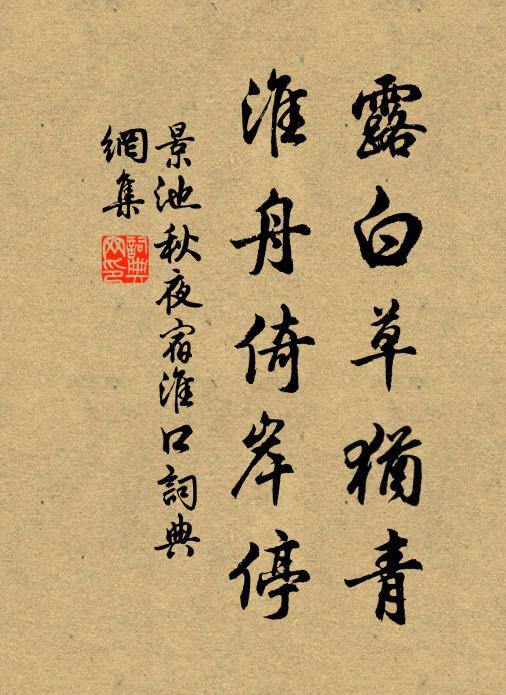 露白草猶青
淮舟倚岸停
景池秋夜宿淮口詞典
網集
詞典
网印